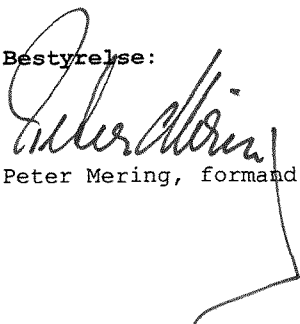 Bestyrelse:
Peter Mering
Peter Mering, formand